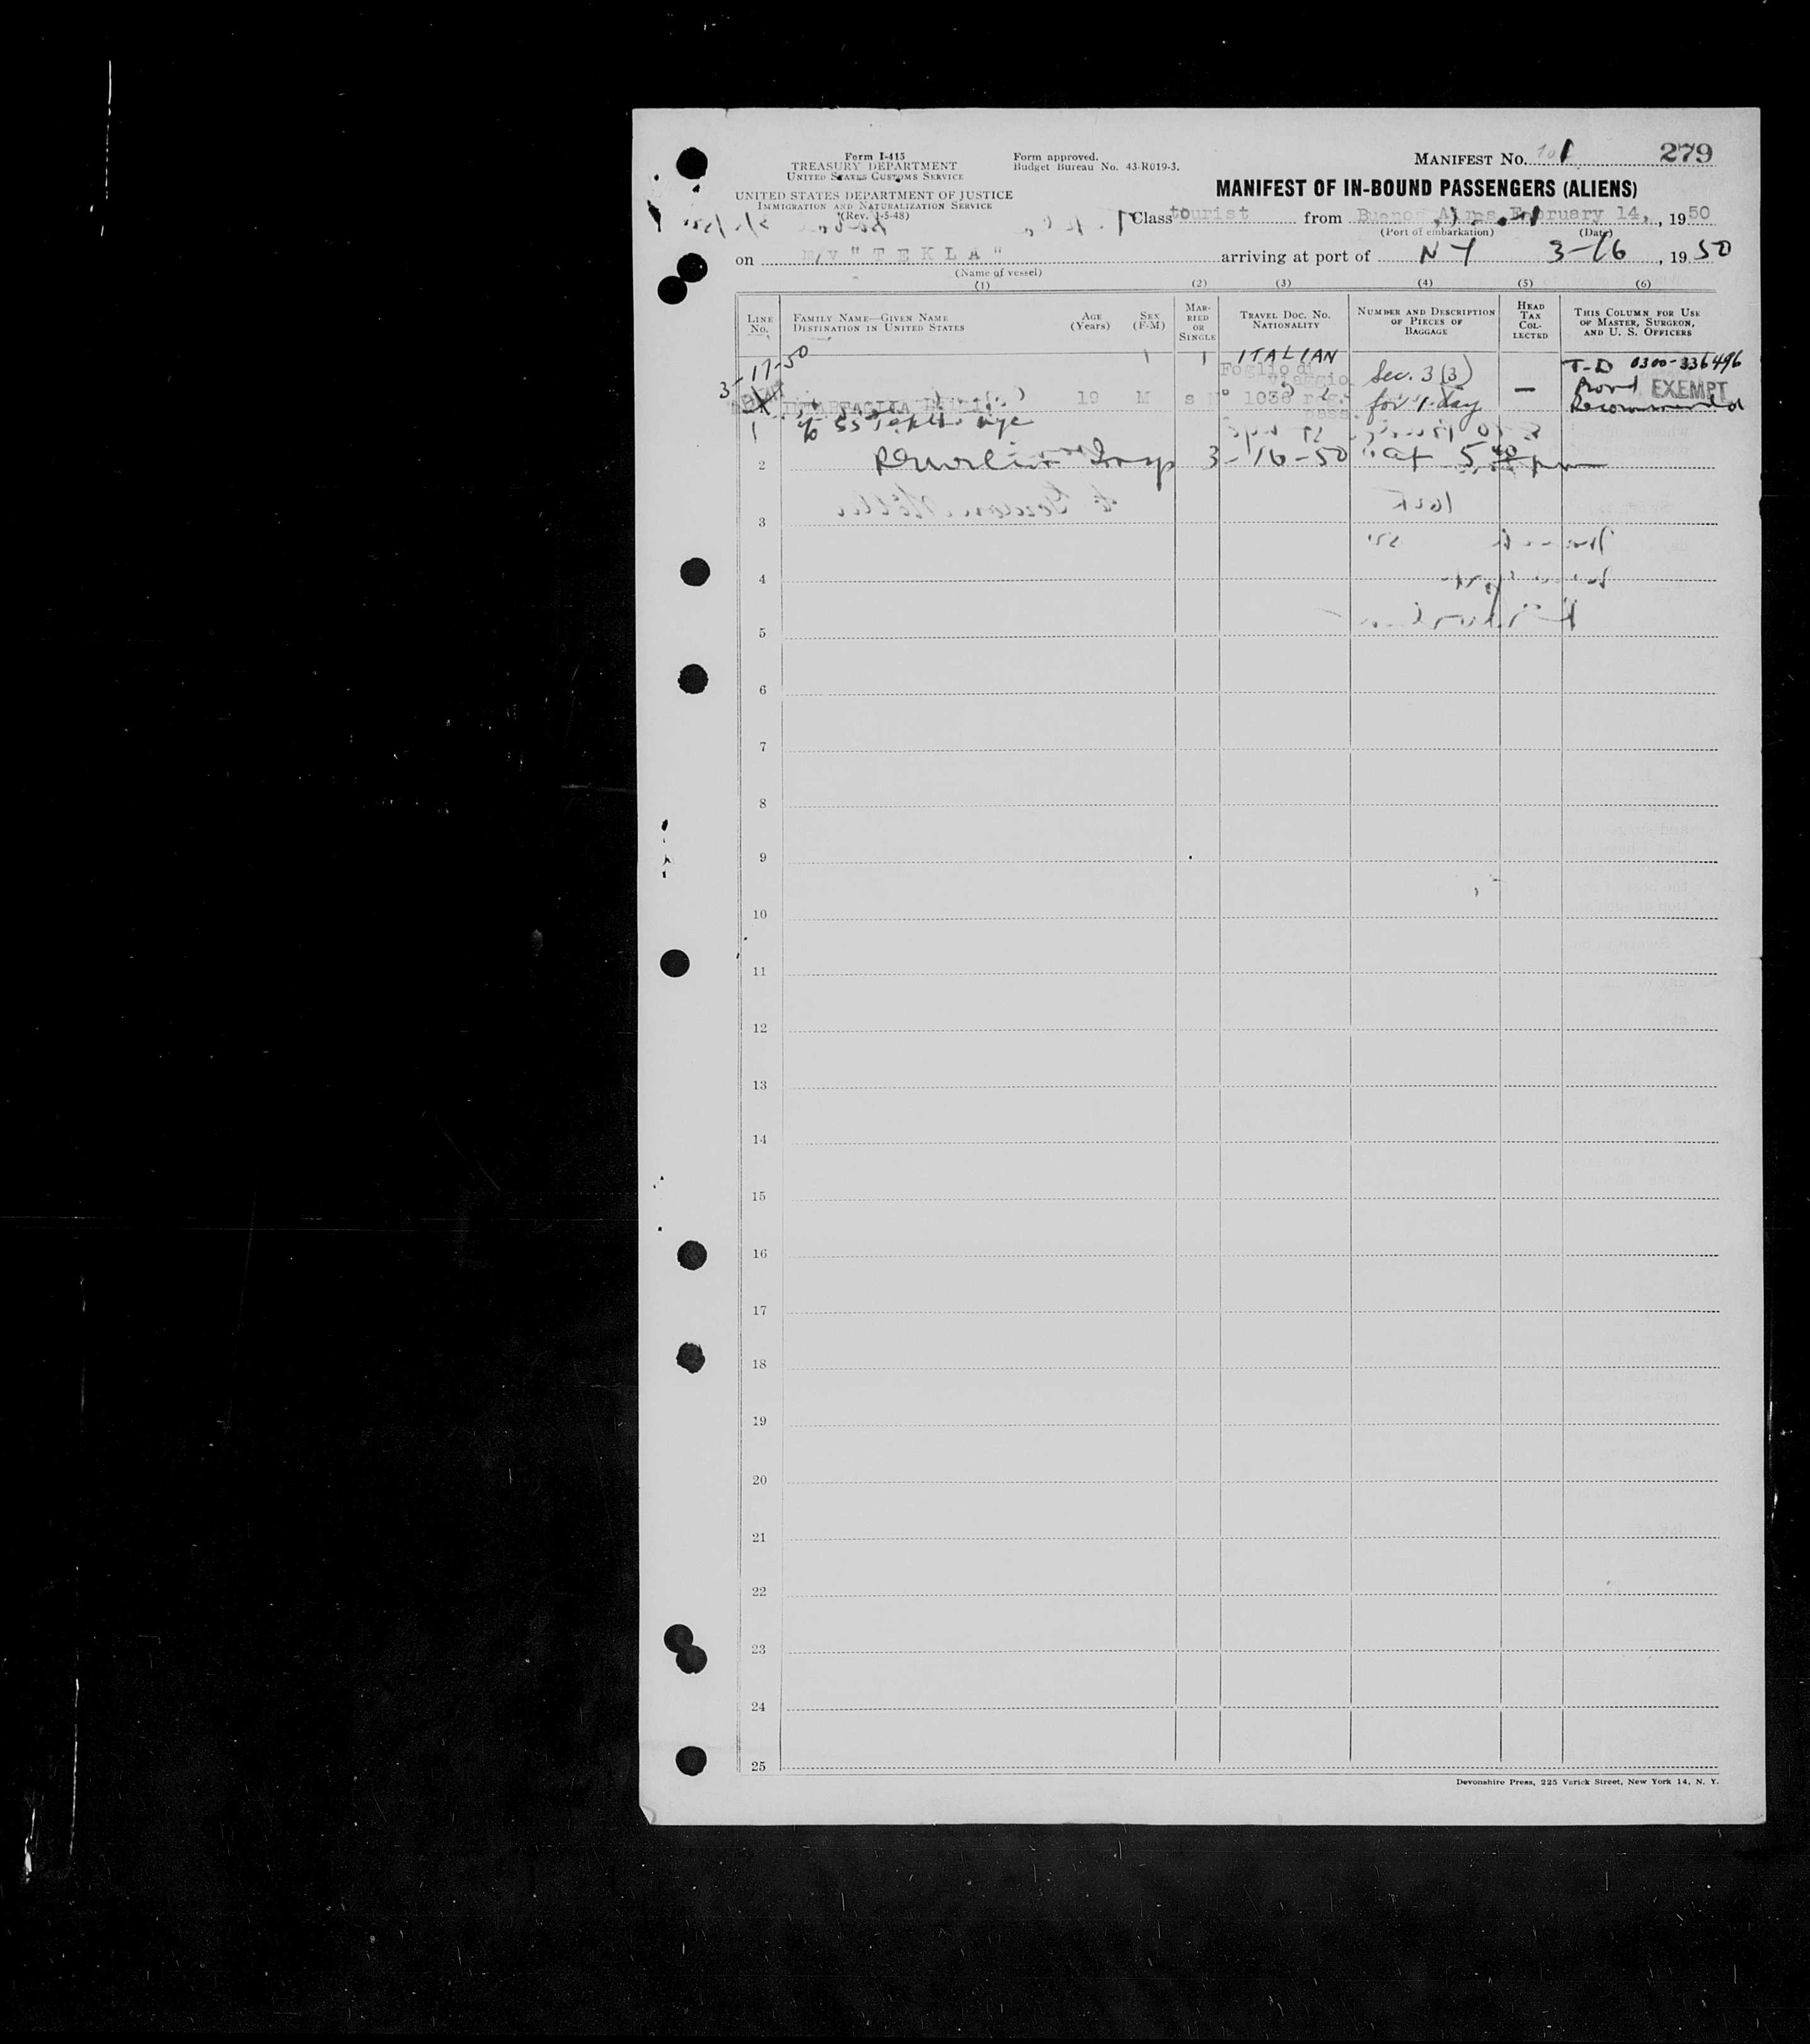 Form I-415
TREASURY DEPARTMENT
UNITED STATES CUSTOMS SERVICE
UNITED STATES DEPARTMENT OF JUSTICE
IMMIGRATION AND NATURALIZATION SERVICE
(Rev. 1-5-48)
Form approved.
Budget Bureau No. 43-R019-3.
MANIFEST NO. 279
MANIFEST OF IN-BOUND PASSENGERS (ALIENS)
Class tourist from Buenos Aires February 14, , 1950
(Port of embarkation) (Date)
on m/v "TEKLA" arriving at port of NY 3-16 , 1950
(Name of vessel)
(1) (2) (3) (4) (5) (6)
LINE No. FAMILY NAME—GIVEN NAME DESTINATION IN UNITED STATES AGE (Years) SEX (F-M) MARRIED OR SINGLE TRAVEL DOC. NO. NATIONALITY NUMBER AND DESCRIPTION OF PIECES OF BAGGAGE HEAD TAX COLLECTED THIS COLUMN FOR USE OF MASTER, SURGEON, AND U. S. OFFICERS
3-17-50 ITALIAN T-D 0300-336496
Foglio di viaggio Sec. 3(3) EXEMPT
19 M s No 1036 reg. pass. for 1 day — Recommend
1 c/o SS Tekla nyc
2 Insp 3-16-50 at 5 40 pm
3
4
5
6
7
8
9
10
11
12
13
14
15
16
17
18
19
20
21
22
23
24
25
Devonshire Press, 225 Varick Street, New York 14, N. Y.